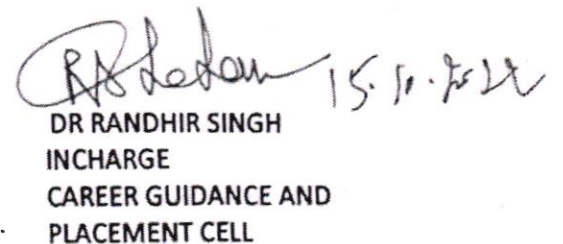 DR RANDHIR SINGH
INCHARGE
CAREER GUIDANCE AND
PLACEMENT CELL